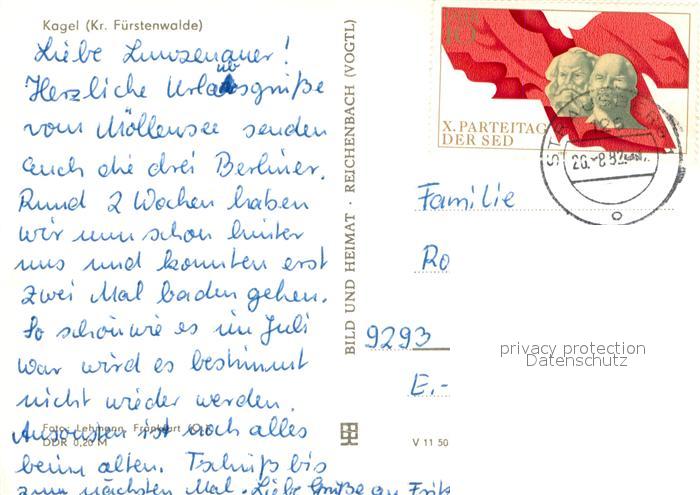 Kagel (Kr. Fürstenwalde)
Liebe Lunzenauer!
Herzliche Urlaubsgrüße
vom Möllensee senden
auch die drei Berliner.
Rund 2 Wochen haben
wir nun schon hinter
uns und konnten erst
zwei Mal baden gehen.
So schön wie es im Juli
war wird es bestimmt
nicht wieder werden.
Ansonsten ist noch alles
beim alten. Tschüß bis
zum nächsten Mal. Liebe Grüße an Fritz
Foto: Lehmann, Frankfurt (O.)
DDR 0,20 M
BILD UND HEIMAT · REICHENBACH (VOGTL)
V 11 50
DDR
10
X. PARTEITAG
DER SED
26.-8.82
Familie
Ro
9293
E.-
privacy protection
Datenschutz